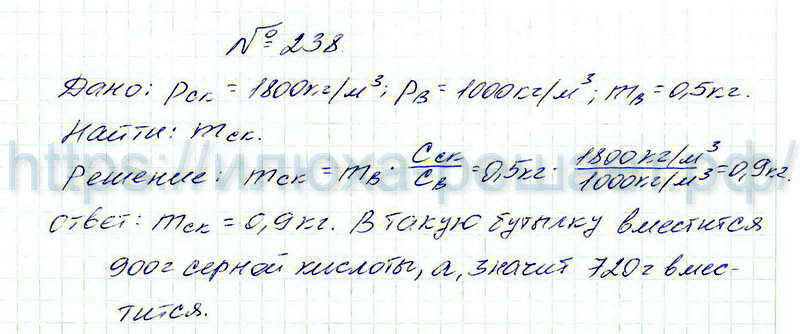 № 238
Дано: ρск = 1800кг/м³; ρв = 1000кг/м³; mв = 0,5кг.
Найти: mск.
Решение: mск = mв · Cск/Cв = 0,5кг · 1800кг/м³/1000кг/м³ = 0,9кг.
Ответ: mск = 0,9кг. В такую бутылку вместится
900г серной кислоты, а, значит 720г вмес-
тится.